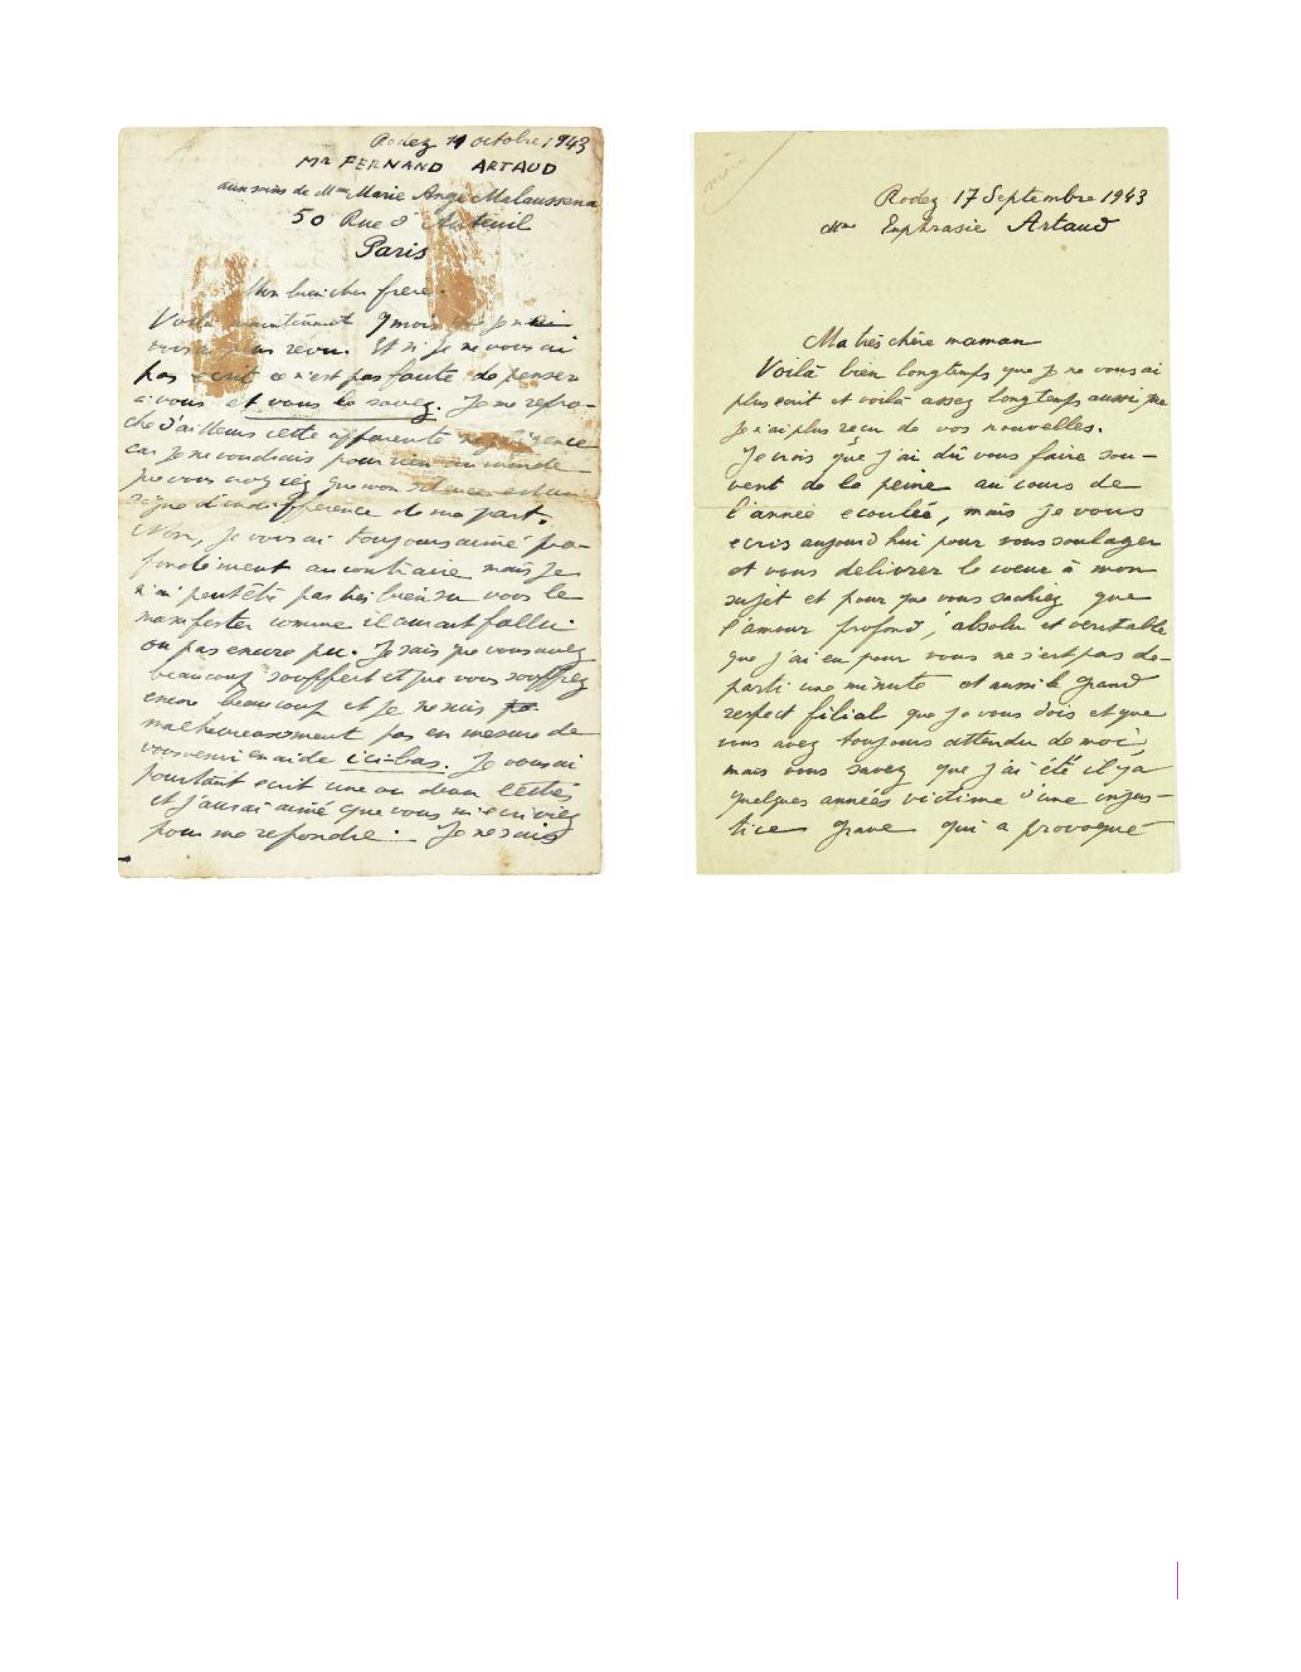 Rodez 11 octobre 1943
Mr FERNAND ARTAUD
aux soins de Mme Marie Ange Malaussena
50 Rue d'Auteuil
Paris
Mon bien cher frère.
Voilà maintenant 9 mois que je
vous ai pas revu. Et si je ne vous ai
pas ecrit ce n'est pas faute de penser
à vous et vous le savez. Je me repro-
che d'ailleurs cette apparente negligence
car je ne voudrais pour rien au monde
que vous croyiez que mon silence est un
signe d'indifference de ma part.
Non, je vous ai toujours aimé pro-
fondement au contraire mais je
n'ai peut être pas très bien su vous le
manifester comme il aurait fallu
ou pas encore pu. Je sais que vous avez
beaucoup souffert et que vous souffrez
encore beaucoup et je ne suis
malheureusement pas en mesure de
vous venir en aide ici-bas. Je vous ai
pourtant ecrit une ou deux lettres
et j'aurai aimé que vous m'ecriviez
pour me repondre. Je ne sais
Rodez 17 Septembre 1943
Mme Euphrasie Artaud
Ma très chère maman
Voilà bien longtemps que je ne vous ai
plus ecrit et voilà assez longtemps aussi que
je n'ai plus reçu de vos nouvelles.
Je crois que j'ai dû vous faire sou-
vent de la peine au cours de
l'année ecoulée, mais je vous
ecris aujourd'hui pour vous soulager
et vous delivrer le coeur à mon
sujet et pour que vous sachiez que
l'amour profond, absolu et veritable
que j'ai eu pour vous ne s'est pas de-
parti une minute et aussi le grand
respect filial que je vous dois et que
vous avez toujours attendu de moi,
mais vous savez que j'ai été il y a
quelques années victime d'une injus-
tice grave qui a provoqué